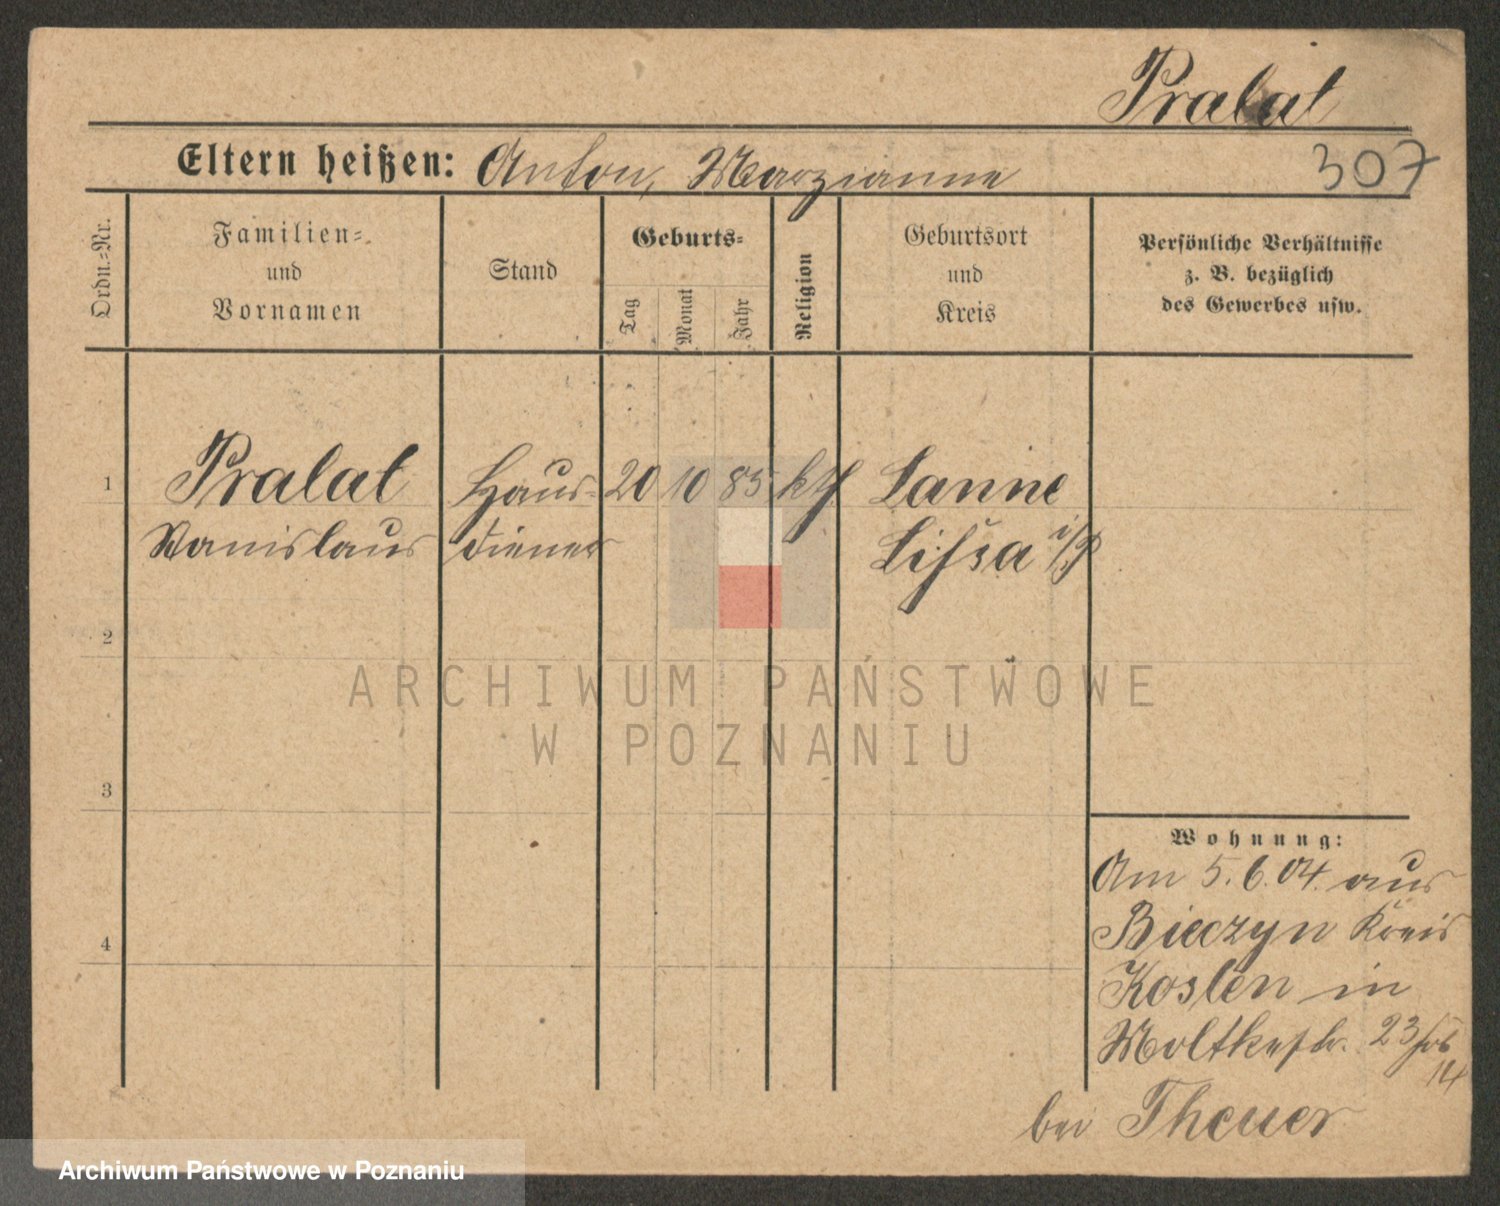 Pralat
Eltern heißen: Anton, Marzianne
307
Ordn.-Nr.
Familien-
und
Vornamen
Stand
Geburts-
Tag
Monat
Jahr
Religion
Geburtsort
und
Kreis
Persönliche Verhältnisse
z. B. bezüglich
des Gewerbes usw.
1
Pralat
Stanislaus
Haus-
diener
20 10 85
kth
Lanne
Lissa i/P
2
3
4
Wohnung:
Am 5.6.04. aus
Bieczyn Kreis
Kosten in
Moltkestr. 23
14
bei Theuer
ARCHIWUM PAŃSTWOWE
W POZNANIU
Archiwum Państwowe w Poznaniu